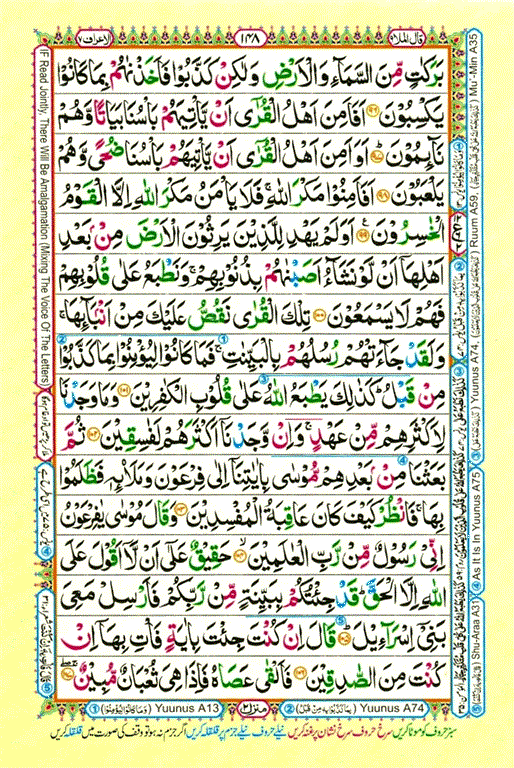 قال الملا ٩
١٤٨
الاعراف ٧
بَرَكٰتٍ مِّنَ السَّمَآءِ وَالْاَرْضِ وَلٰكِنْ كَذَّبُوْا فَاَخَذْنٰهُمْ بِمَا كَانُوْا
يَكْسِبُوْنَ ۝٩٦ اَفَاَمِنَ اَهْلُ الْقُرٰٓى اَنْ يَّاْتِيَهُمْ بَاْسُنَا بَيَاتًا وَّهُمْ
نَآئِمُوْنَ ۝٩٧ اَوَاَمِنَ اَهْلُ الْقُرٰٓى اَنْ يَّاْتِيَهُمْ بَاْسُنَا ضُحًى وَّهُمْ
يَلْعَبُوْنَ ۝٩٨ اَفَاَمِنُوْا مَكْرَ اللّٰهِ ۚ فَلَا يَاْمَنُ مَكْرَ اللّٰهِ اِلَّا الْقَوْمُ
الْخٰسِرُوْنَ ۝٩٩ اَوَلَمْ يَهْدِ لِلَّذِيْنَ يَرِثُوْنَ الْاَرْضَ مِنْۢ بَعْدِ
اَهْلِهَآ اَنْ لَّوْ نَشَآءُ اَصَبْنٰهُمْ بِذُنُوْبِهِمْ ۚ وَنَطْبَعُ عَلٰى قُلُوْبِهِمْ
فَهُمْ لَا يَسْمَعُوْنَ ۝١٠٠ تِلْكَ الْقُرٰى نَقُصُّ عَلَيْكَ مِنْ اَنْۢبَآئِهَا ۚ
وَلَقَدْ جَآءَتْهُمْ رُسُلُهُمْ بِالْبَيِّنٰتِ ۚ فَمَا كَانُوْا لِيُؤْمِنُوْا بِمَا كَذَّبُوْا
مِنْ قَبْلُ ؕ كَذٰلِكَ يَطْبَعُ اللّٰهُ عَلٰى قُلُوْبِ الْكٰفِرِيْنَ ۝١٠١ وَمَا وَجَدْنَا
لِاَكْثَرِهِمْ مِّنْ عَهْدٍ ۚ وَاِنْ وَّجَدْنَآ اَكْثَرَهُمْ لَفٰسِقِيْنَ ۝١٠٢ ثُمَّ
بَعَثْنَا مِنْۢ بَعْدِهِمْ مُّوْسٰى بِاٰيٰتِنَآ اِلٰى فِرْعَوْنَ وَمَلَا۟ئِهٖ فَظَلَمُوْا
بِهَا ۚ فَانْظُرْ كَيْفَ كَانَ عَاقِبَةُ الْمُفْسِدِيْنَ ۝١٠٣ وَقَالَ مُوْسٰى يٰفِرْعَوْنُ
اِنِّيْ رَسُوْلٌ مِّنْ رَّبِّ الْعٰلَمِيْنَ ۝١٠٤ حَقِيْقٌ عَلٰٓى اَنْ لَّآ اَقُوْلَ عَلَى
اللّٰهِ اِلَّا الْحَقَّ ؕ قَدْ جِئْتُكُمْ بِبَيِّنَةٍ مِّنْ رَّبِّكُمْ فَاَرْسِلْ مَعِيَ
بَنِيْٓ اِسْرَآءِيْلَ ۝١٠٥ قَالَ اِنْ كُنْتَ جِئْتَ بِاٰيَةٍ فَاْتِ بِهَآ اِنْ
كُنْتَ مِنَ الصّٰدِقِيْنَ ۝١٠٦ فَاَلْقٰى عَصَاهُ فَاِذَا هِيَ ثُعْبَانٌ مُّبِيْنٌ ۝١٠٧
منزل ٢
② Yuunus A74
① Yuunus A13 (وَمَا كَانُوْا لِيُؤْمِنُوْا)
سبز حروف کو موٹا کریں سرخ حروف سرخ نشان پر غنہ کریں نیلے حروف نیلے جزم پر قلقلہ کریں اگر جزم نہ ہو تو وقف کی صورت میں قلقلہ کریں
IF Read Jointly, There Will Be Amalgamation (Mixing The Voice Of The Letters)
Mu'-Min A35
Ruum A59,
Yuunus A74,
③
As It Is In Yuunus A75
④
Shu-Araa A31
⑤